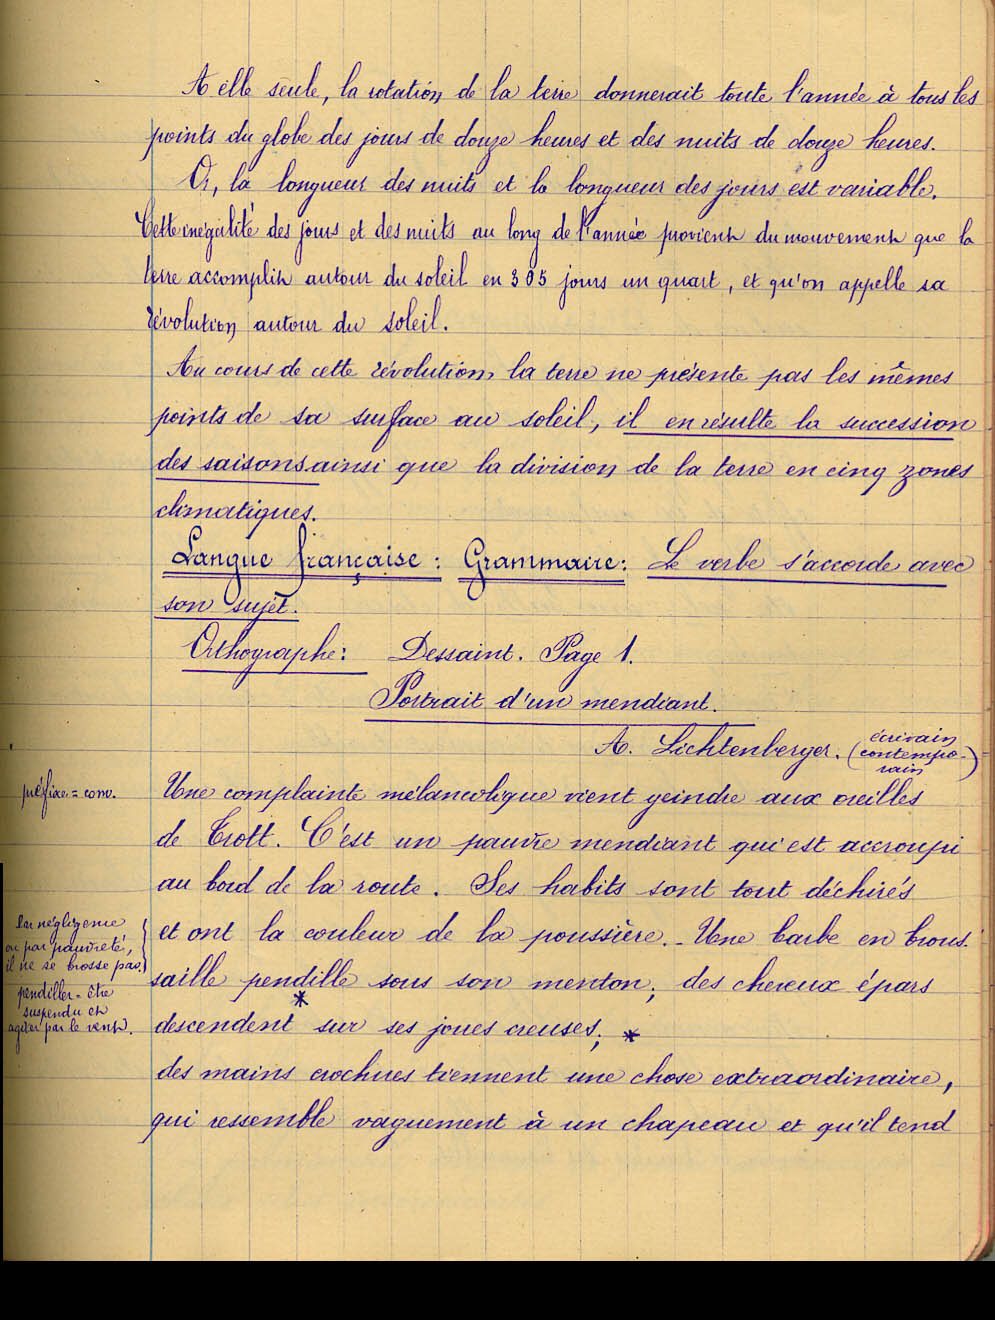 A elle seule, la rotation de la terre donnerait toute l'année à tous les
points du globe des jours de douze heures et des nuits de douze heures.
Or, la longueur des nuits et la longueur des jours est variable.
Cette inégalité des jours et des nuits au long de l'année provient du mouvement que la
terre accomplit autour du soleil en 365 jours un quart, et qu'on appelle sa
révolution autour du soleil.
Au cours de cette révolution, la terre ne présente pas les mêmes
points de sa surface au soleil, il en résulte la succession
des saisons ainsi que la division de la terre en cinq zones
climatiques.
Langue française : Grammaire : Le verbe s'accorde avec
son sujet.
Orthographe : Dessaint. Page 1.
Portrait d'un mendiant.
A. Lichtenberger. (écrivain
contempo-
rain)
préfixe = com.
Une complainte mélancolique vient geindre aux oreilles
de Trott. C'est un pauvre mendiant qui est accroupi
au bord de la route. Ses habits sont tout déchirés
par négligence
ou par pauvreté,
il ne se brosse pas.
et ont la couleur de la poussière. - Une barbe en brous-
saille pendille sous son menton; des cheveux épars
pendiller = être
suspendu et
agiter par le vent.
descendent * sur ses joues creuses; *
des mains crochues tiennent une chose extraordinaire,
qui ressemble vaguement à un chapeau et qu'il tend